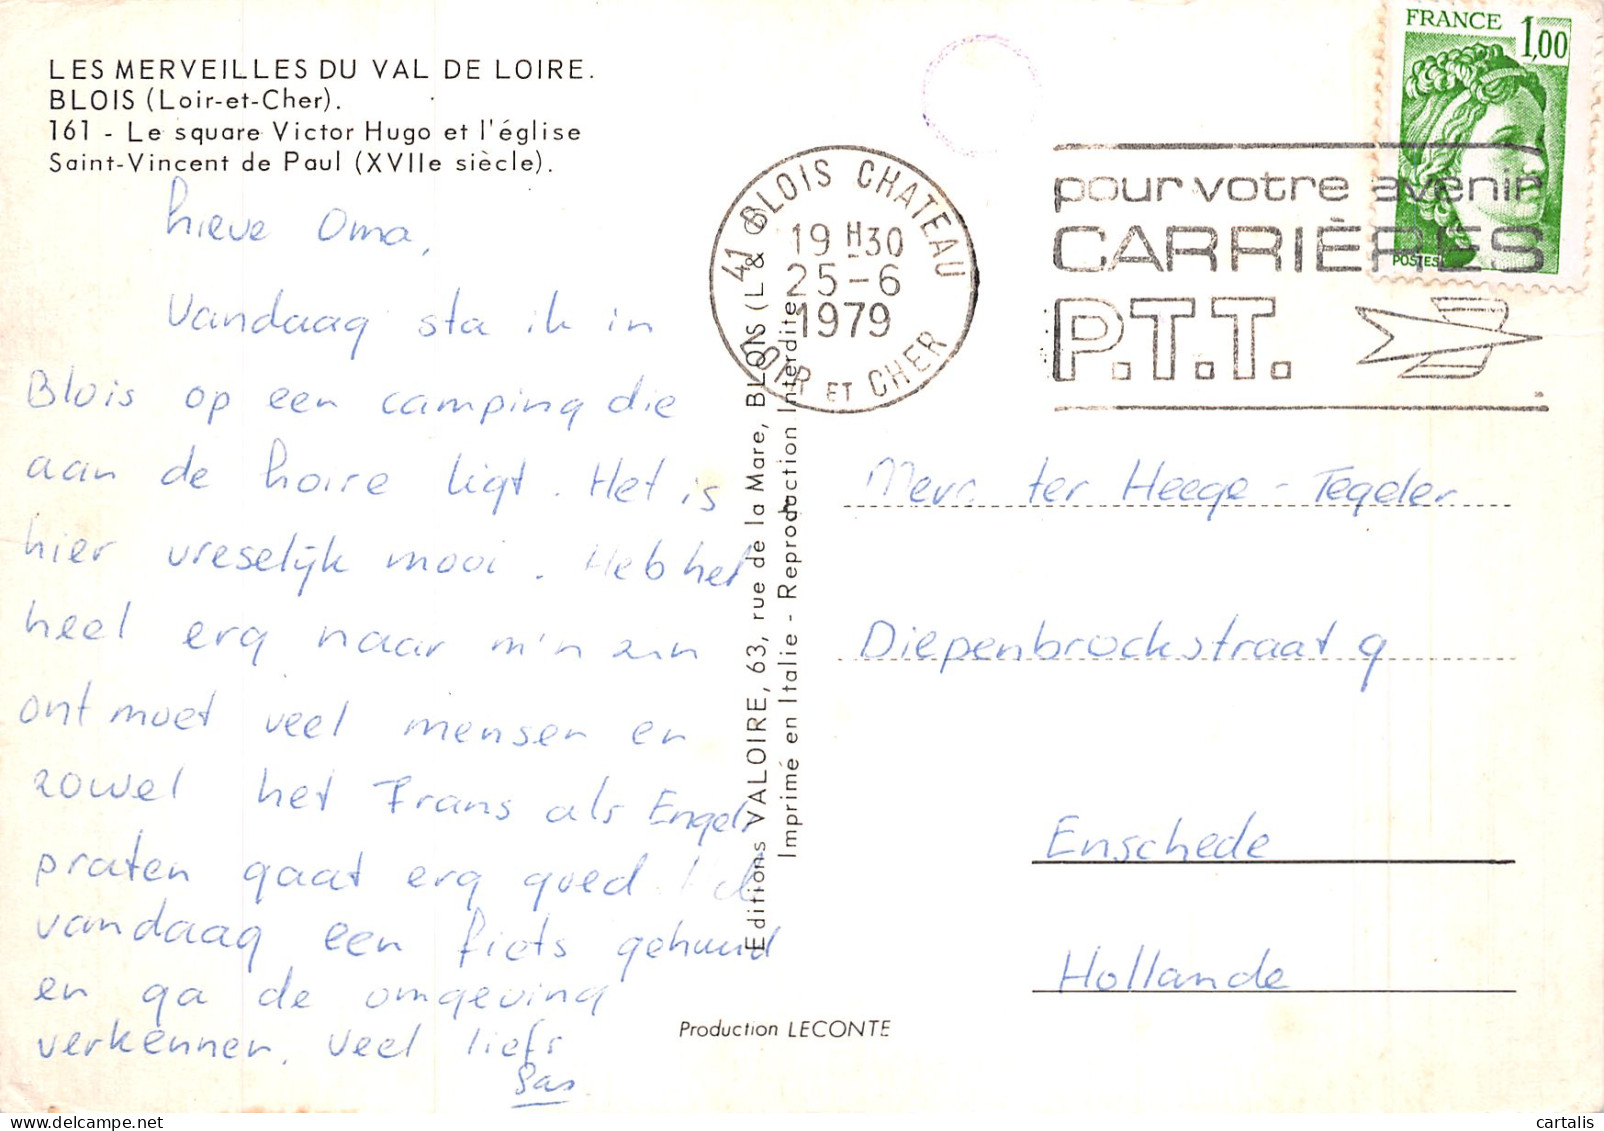 LES MERVEILLES DU VAL DE LOIRE.
BLOIS (Loir-et-Cher).
161 - Le square Victor Hugo et l'église
Saint-Vincent de Paul (XVIIe siècle).
Lieve Oma,
Vandaag sta ik in
Blois op een camping die
aan de Loire ligt. Het is
hier vreselijk mooi. Heb het
heel erg naar m'n zin
ontmoet veel mensen en
zowel het Frans als Engels
praten gaat erg goed. Heb
vandaag een fiets gehuurd
en ga de omgeving
verkennen. Veel liefs
Bas
Editions VALOIRE, 63, rue de la Mare, BLOIS (L & C)
Imprimé en Italie - Reproduction Interdite
Production LECONTE
41 BLOIS CHATEAU
19 H30
25-6
1979
LOIR ET CHER
pour votre avenir
CARRIÈRES
P.T.T.
FRANCE 1,00
POSTES
Mevr. ter Heege - Tegeler
Diepenbrockstraat 9
Enschede
Hollande
cartalis.com